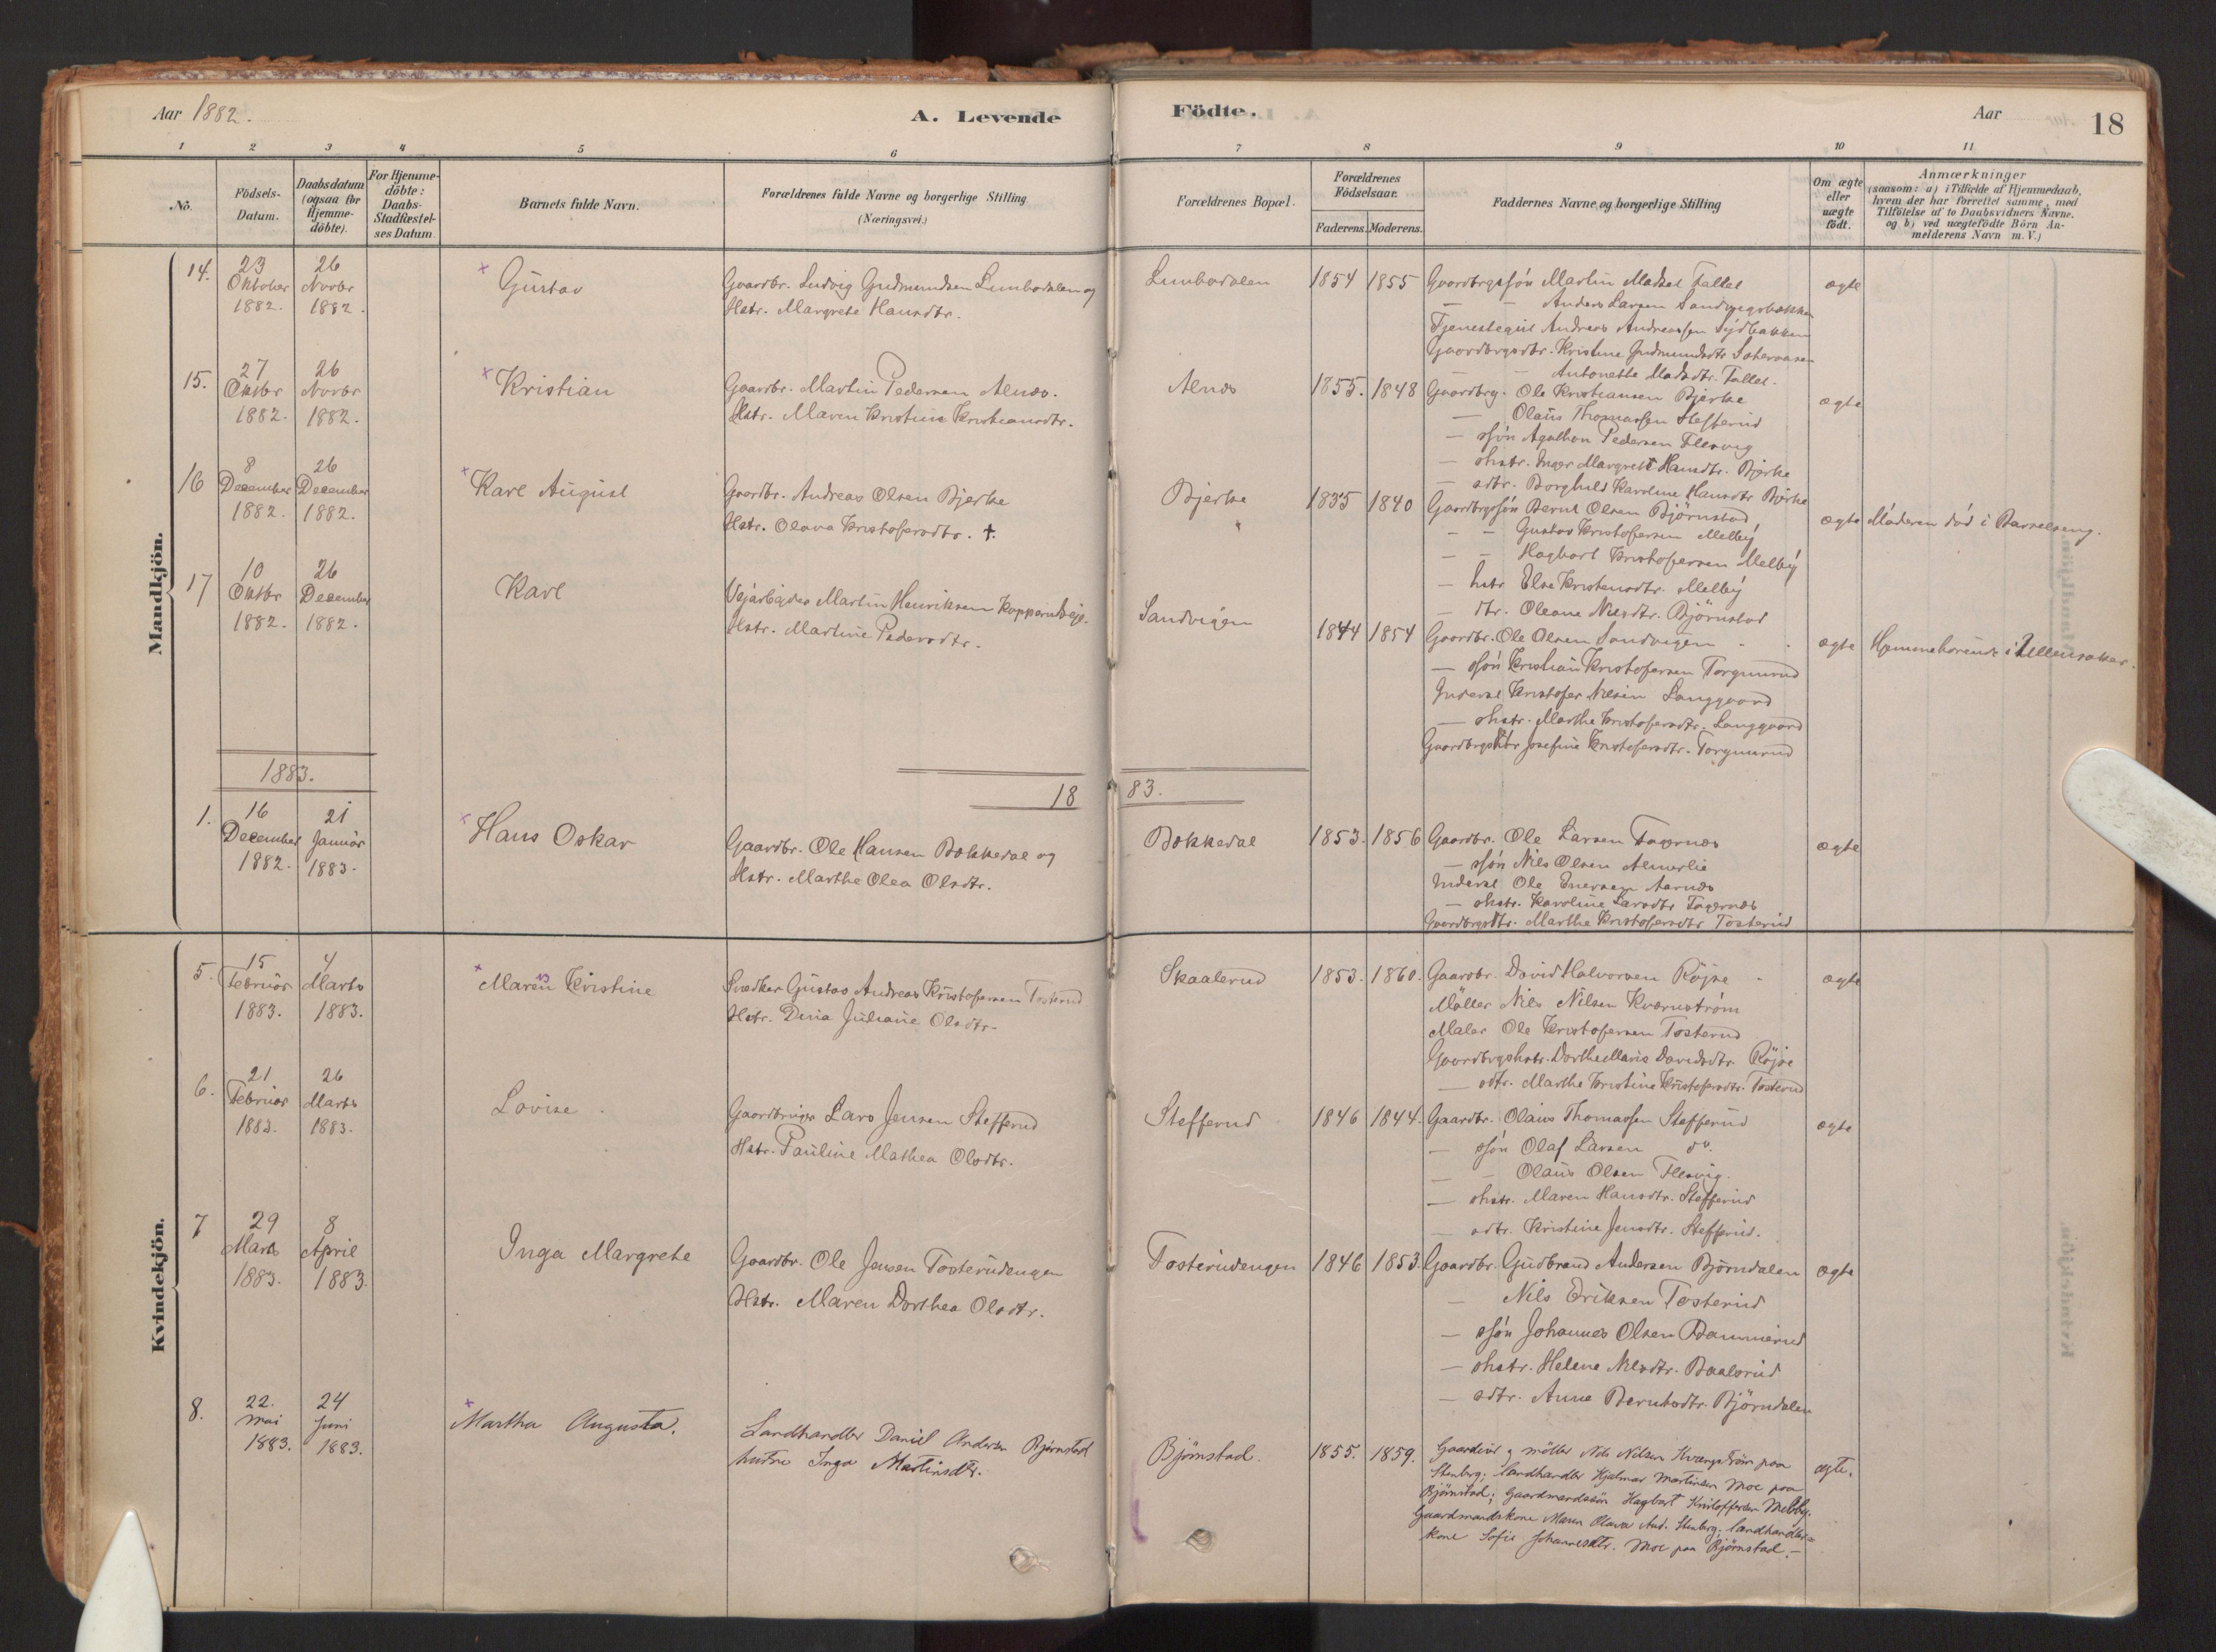 Aar 1882.
A. Levende
Födte.
Aar
18
1 2 3 4 5 6 7 8 9 10 11
No.
Födsels-Datum.
Daabsdatum (ogsaa for Hjemme-döbte).
For Hjemme-döbte: Daabs-Stadfæstel-ses Datum.
Barnets fulde Navn.
Forældrenes fulde Navne og borgerlige Stilling (Næringsvei.)
Forældrenes Bopæl.
Forældrenes Födselsaar.
Faderens. Moderens.
Faddernes Navne og borgerlige Stilling
Om ægte eller uægte födt.
Anmærkninger
(saasom: a) i Tilfælde af Hjemmedaab, hvem der har forrettet samme, med Tilföielse af to Daabsvidners Navne, og b) ved uægtefödte Börn An-melderens Navn m. V.)
Mandkjön.
14.
23 Oktober 1882.
26 Novbr 1882.
Gustav
Gaardbr. Ludvig Gudmundsen Lunbodalen og
Hstr. Margrete Hansdtr.
Lunbodalen
1854 1855
Gaardbrgssön Martin Madsen Fallet
— — Anders Larsen Sandvigsbakken
Tjenestegut Andreas Andreassen Sydbakken
Gaardbrgsdtr. Kristine Gudmundsdtr
— Antonette Madsdtr. Fallet.
ægte
15.
27 Oktbr 1882.
26 Novbr 1882.
Kristian
Gaardbr. Martin Pedersen Alnæs.
Hstr. Maren Kristine Kristiansdtr.
Alnæs
1855. 1848
Gaardbrg. Ole Kristiansen Bjerke
— Olaus Thomassen Stefferud
— ssön Agathon Pedersen Flesvig
— shstr. Inger Margrete Hansdtr. Bjerke
— sdtr. Borghild Karoline Hansdtr Bjerke
ægte
16
8 December 1882.
26 December 1882.
Karl August
Gaardbr. Andreas Olsen Bjerke
Hstr. Olava Kristofersdtr. †.
Bjerke
"
1835 1840
Gaardbrgssön Bernt Olsen Björnstad
— — Gustav Kristofersen Melby
— — Hagbart Kristofersen Melby
— hstr Else Kristensdtr. Melby
— dtr. Oleane Nilsdtr. Björnstad
ægte
Moderen död i Barselseng.
17
10 Oktbr 1882.
26 December 1882.
Karl
Vejarbejder Martin Henriksen
Hstr. Martine Pedersdtr.
Sandvigen
1844 1854
Gaardbr. Ole Olsen Sandvigen
— ssön Kristian Kristofersen Torgunrud
Inderst Kristofer Nilsen Langgaard
— shstr. Marthe Kristofersdtr. Langgaard
Gaardbrgsdtr Josefine Kristofersdtr. Torgunrud
ægte
Hjemmehörende i Ullensaker.
1883.
18 83.
1.
16 December 1882.
21 Januar 1883.
Hans Oskar
Gaardbr. Ole Hansen Bækkedal og
Hstr. Marthe Olea Olsdtr.
Bækkedal
1853. 1856
Gaardbr. Ole Larsen Fagernæs
— ssön Nils Olsen Almerlie
Inderst Ole Enersen Aarnæs
— shstr. Karoline Larsdtr Fagernæs
Gaardbrgsdtr. Marthe Kristofersdtr Tosterud
ægte
Kvindekjön.
5.
15 Februar 1883.
4 Marts 1883.
Maren Kristine
Snedker Gustav Andreas Kristofersen Tosterud
Hstr. Dina Juliane Olsdtr.
Skaalerud
1853. 1860.
Gaardbr. David Halvorsen Röjse
Möller Nils Nilsen Kværnström
Maler Ole Kristofersen Tosterud
Gaardbrgshstr. Dorthe Maris Davidsdtr. Röjse
— sdtr. Marthe Kristine Kristofersdtr. Tosterud
ægte
6.
21 Februar 1883.
26 Marts 1883.
Lovise.
Gaardbruger Lars Jensen Stefferud
Hstr. Pauline Mathea Olsdtr.
Stefferud
1846 1844.
Gaardbr. Olaus Thomassen Stefferud
— ssön Olaf Larsen do.
— — Olaus Olsen Flesvig.
— shstr. Maren Hansdtr. Stefferud
— sdtr. Kristine Jensdtr. Stefferud.
ægte
7
29 Marts 1883.
8 April 1883.
Inga Margrete
Gaardbr. Ole Jensen Tosterudengen
Hstr. Maren Dorthea Olsdtr.
Tosterudengen
1846 1853.
Gaardbr. Gudbrand Andersen Björndalen
— Nils Eriksen Tosterud
— ssön Johannes Olsen Bammerud
— shstr. Helene Nilsdtr. Baalsrud
— sdtr. Anne Berntsdtr. Björndalen
ægte
8.
22. Mai 1883.
24 Juni 1883.
Martha Augusta.
Landhandler Daniel Andersen Bjørnstad
hustru Inga Martinsdtr.
Bjørnstad.
1855. 1859.
Gaardeier og møller Nils Nilsen Kværnstrøm paa
Stenberg; landhandler Hjalmar Martinsen Moe paa
Bjørnstad; Gaardmandssøn Hagbart Kristoffersen Melby.
Gaardmandskone Maren Olava And. Stenberg; landhandler=
kone Sofie Johannesdtr. Moe paa Bjørnstad.—
ægte.